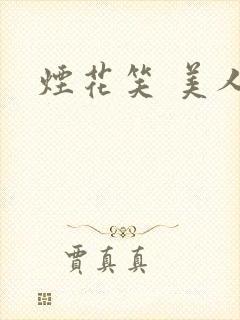 煙花笑 美人
賈真真